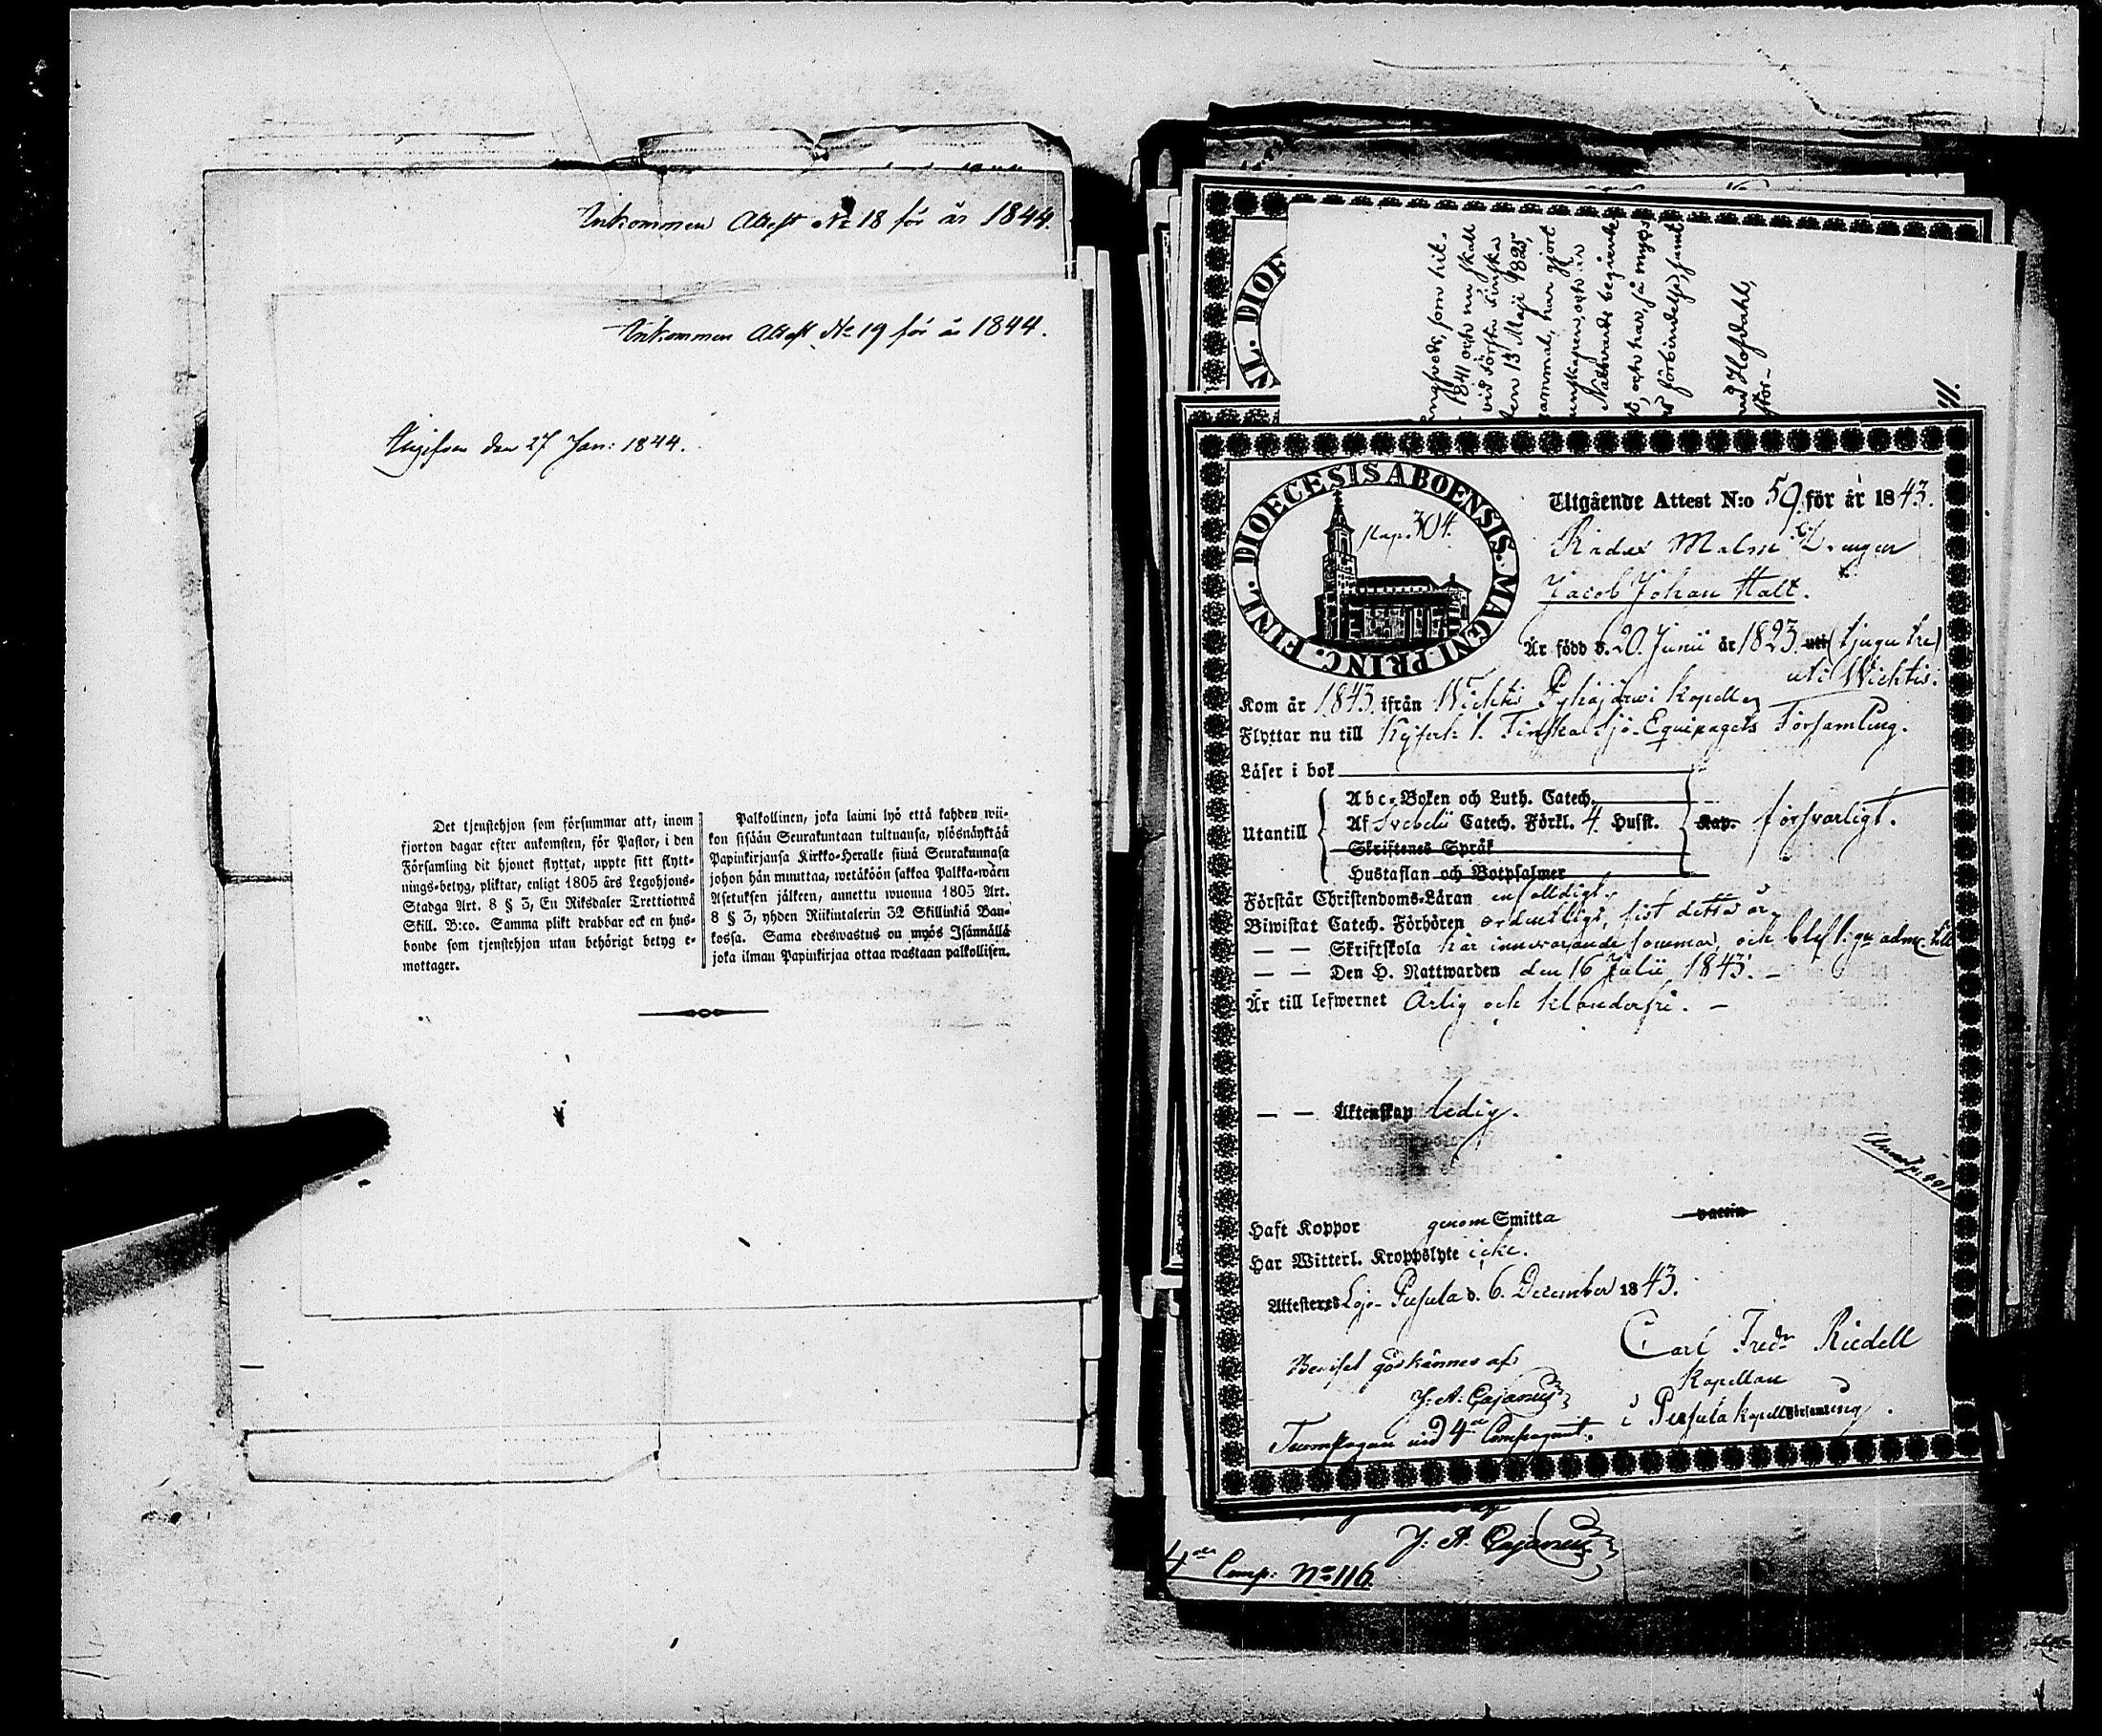 Inkommen Attest No 18 för år 1844.
Inkommen Attest No 19 för år 1844.
den 27 Jan: 1844.
Det tjenstehjon som försummar att, inom
fjorton dagar efter ankomsten, för Pastor, i den
Församling dit hjonet flyttat, uppte sitt flytt-
nings-betyg, pliktar, enligt 1805 års Legohjons-
Stadga Art. 8 § 3, En Riksdaler Trettiotwå
Skill. B:co. Samma plikt drabbar ock en hus-
bonde som tjenstehjon utan behörigt betyg e-
mottager.
Palkollinen, joka laimi lyö että kahden wii-
kon sisään Seurakuntaan tultuansa, ylösnäyttää
Papinkirjansa Kirkko-Heralle siinä Seurakunnasa
johon hän muuttaa, wetäköön sakkoa Palkka-wäen
Asetuksen jälkeen, annettu wuonna 1805 Art.
8 § 3, yhden Riikintalerin 32 Skillinkiä Ban-
kossa. Sama edeswastus on myös Isännällä
joka ilman Papinkirjaa ottaa wastaan palkollisen.
som hit.
1841 och nu skall
vid Första Finska
den 13 Maji 1825,
gammal, har gjort
och är
Nattvards begående
och har, så mycket
förbindelse, samt
Hofdahl,
DIOECESIS ABOENSIS. MAGNI PRINC. FINL.
pag. 304.
Utgående Attest N:o 59. för år 1843.
Malm
Jacob Johan Halt.
Är född d. 20. Junii år 1823. uti (tjugu tre)
uti Wichtis.
Kom år 1843. ifrån Wichtis Pyhäjärwi Kapell
Flyttar nu till Kejserl: 1. Finska Sjö-Equipagets Församling.
Läser i bok
Abc-Boken och Luth. Catech.
Utantill Af Svebelii Catech. Förkl. 4. Hufst. Kap. försvarligt.
Skriftenes Språk
Hustaflan och Botpsalmer
Förstår Christendoms-Läran enfalldigt.
Biwistat Catech. Förhören ordentligt, sist detta år.
— — Skriftskola här innevarande sommar, och blef l: g: adm: till
— — Den H. Nattwarden den 16 Julii 1843. —
Är till lefwernet Ärlig och klanderfri. —
— — Äktenskap ledig.
Haft Koppor genom Smitta vaccin
Har Witterl. Kroppslyte icke.
Attesteres Lojo-Pusula d. 6. December 1843.
Carl Fredr Riedell
Kapellan
i Pusula kapellförsamling.
Beviset godkännes af
J: A: Cajanus
vid 4de Compagniet.
J: A. Cajanus
4de Comp: No 116.